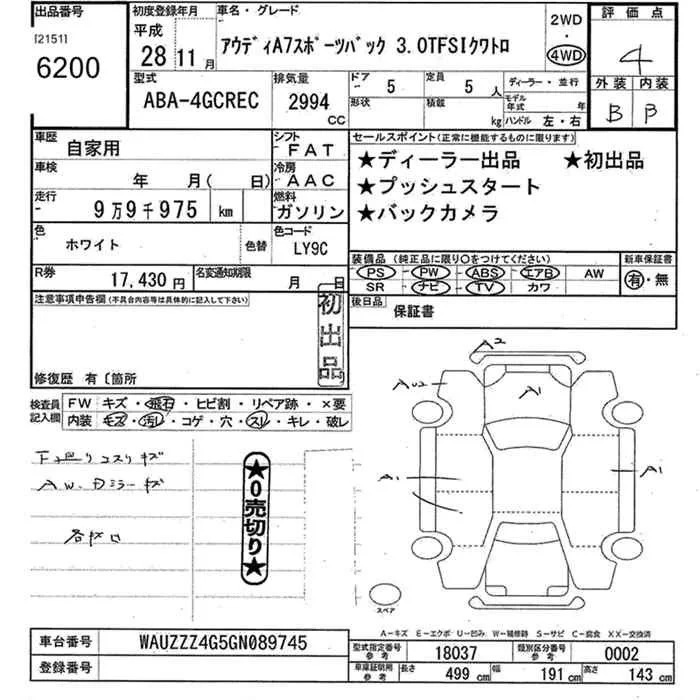 出品番号
[2151]
6200
初度登録年月
平成
28 11月
車名・グレード
アウディA7スポーツバック 3.0TFSIクワトロ
2WD
・
4WD
評価点
4
外装 内装
B B
型式
ABA-4GCREC
排気量
2994
CC
ドア
5
形状
定員
5 人
積載
kg
ディーラー・並行
モデル年式 年
ハンドル 左・右
車歴
自家用
シフト
FAT
車検
年 月( 日)
冷房
AAC
走行
9万9千975 km
燃料
ガソリン
色
ホワイト
色替
色コード
LY9C
R券
17,430円
名変通知期限
月 日
セールスポイント(正常に機能するものに限ります)
★ディーラー出品 ★初出品
★プッシュスタート
★バックカメラ
装備品(純正品に限り○をつけてください)
PS - PW - ABS - エアB AW
SR ナビ TV カワ
新車保証書
有・無
後日品
保証書
注意事項申告欄(不具合内容等は具体的に記入して下さい)
初出品
修復歴 有〔箇所
検査員
記入欄
FW キズ・飛石・ヒビ割・リペア跡・×要
内装 キズ・汚レ・コゲ・穴・スレ・キレ・破レ
A.W.Dミラーキズ
★0売切り★
A2
AU2
A1
A1
A1
スペア
A-キズ E-エクボ U-凹み W-補修跡 S-サビ C-腐食 XX-交換済
車台番号
WAUZZZ4G5GN089745
登録番号
型式指定番号
参考
18037
類別区分番号
参考
0002
車庫証明用
参考
長さ 499 cm 幅 191 cm 高さ 143 cm